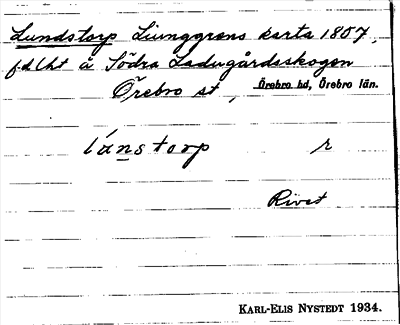 Lundstorp Ljunggrens karta 1857,
fd lht å Södra Ladugårdsskogen
Örebro st, Örebro hd, Örebro län.
lánstorp r
Rivet
KARL-ELIS NYSTEDT 1934.